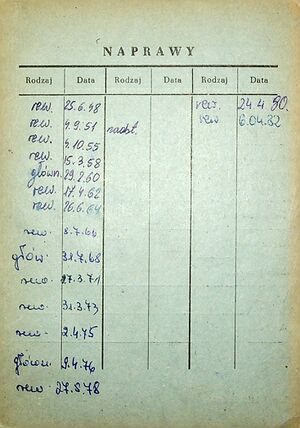 NAPRAWY
Rodzaj Data Rodzaj Data Rodzaj Data
rew. 25.6.48 rew. 24.4.80.
rew. 4.9.51 nadzt. rew 6.04.82
rew. 4.10.55
rew. 15.3.58
główn. 29.2.60
rew. 17.4.62
rew. 26.6.64
rew. 8.7.66
głów. 31.7.68
rew. 27.3.71
rew. 31.3.73
rew. 2.4.75
główn. 9.4.76
rew 27.8.78